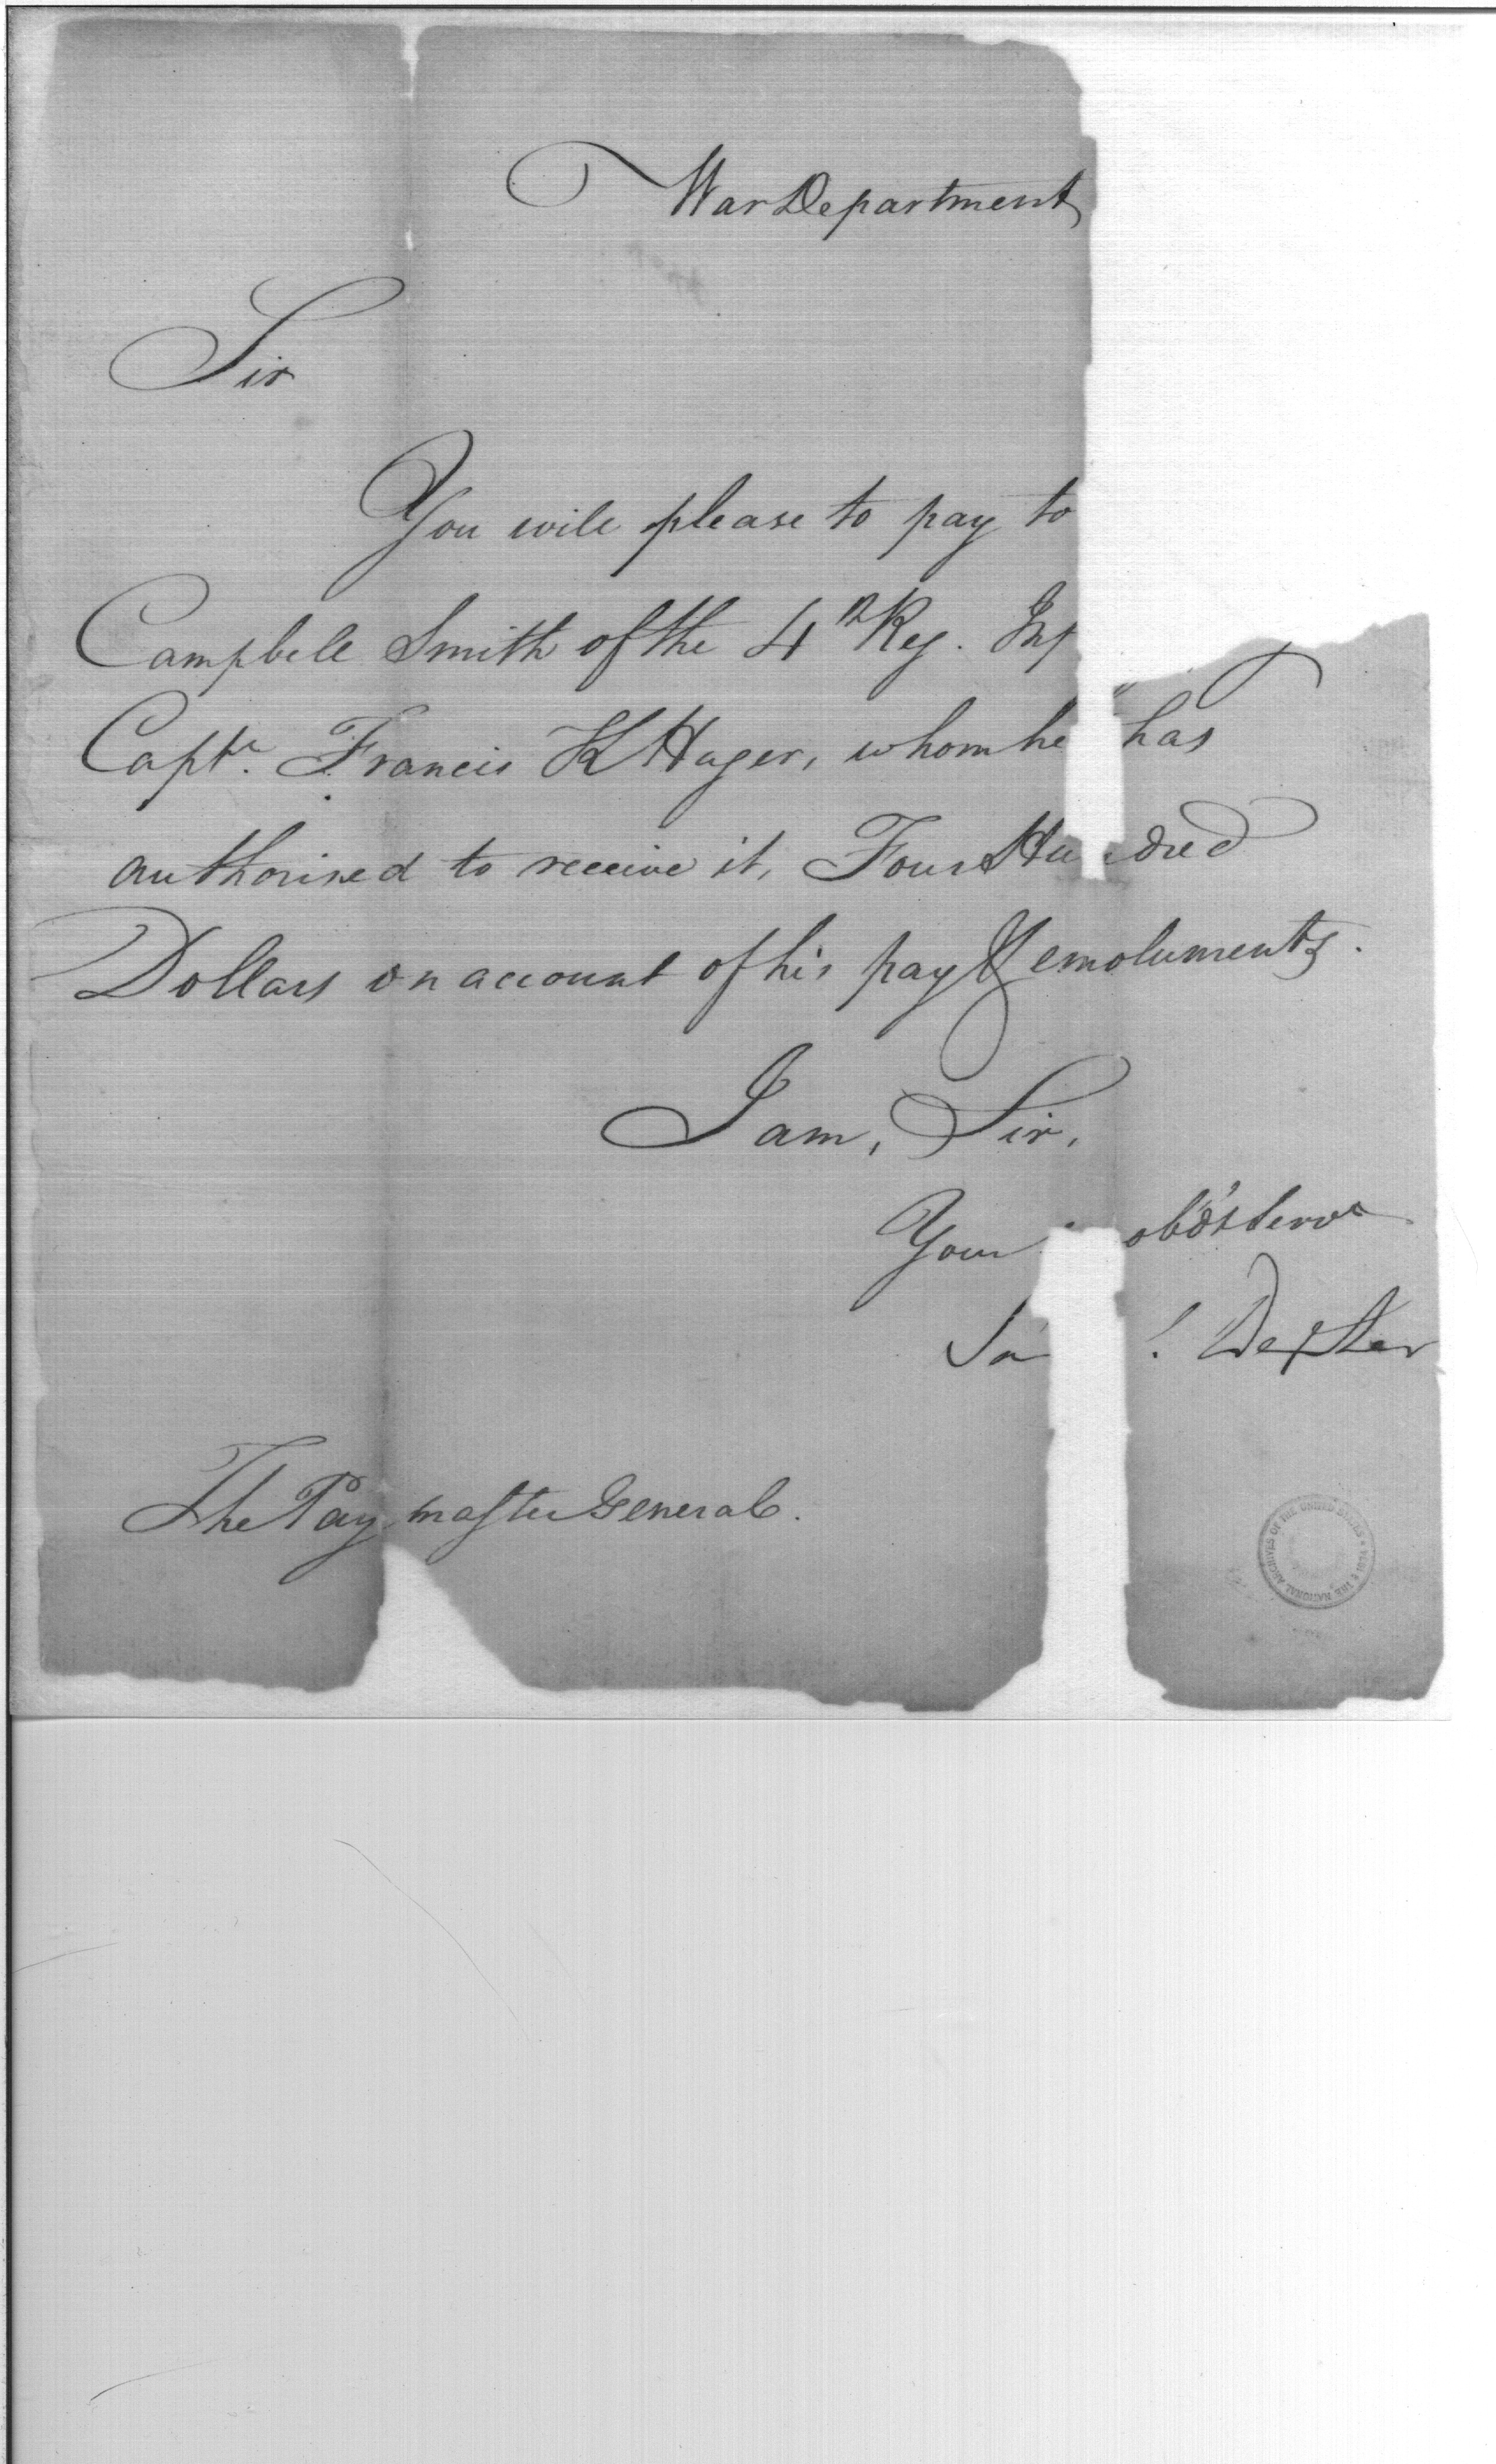 War Department
Sir
You will please to pay to
Campbell Smith of the 4th Reg. Inf
Capt. Francis K Huger, whom he has
authorised to receive it, Four Hu dred
Dollars on account of his pay & emoluments.
I am, Sir,
Your obdt servt
Sa l Dexter
The Pay master General.
THE NATIONAL ARCHIVES OF THE UNITED STATES